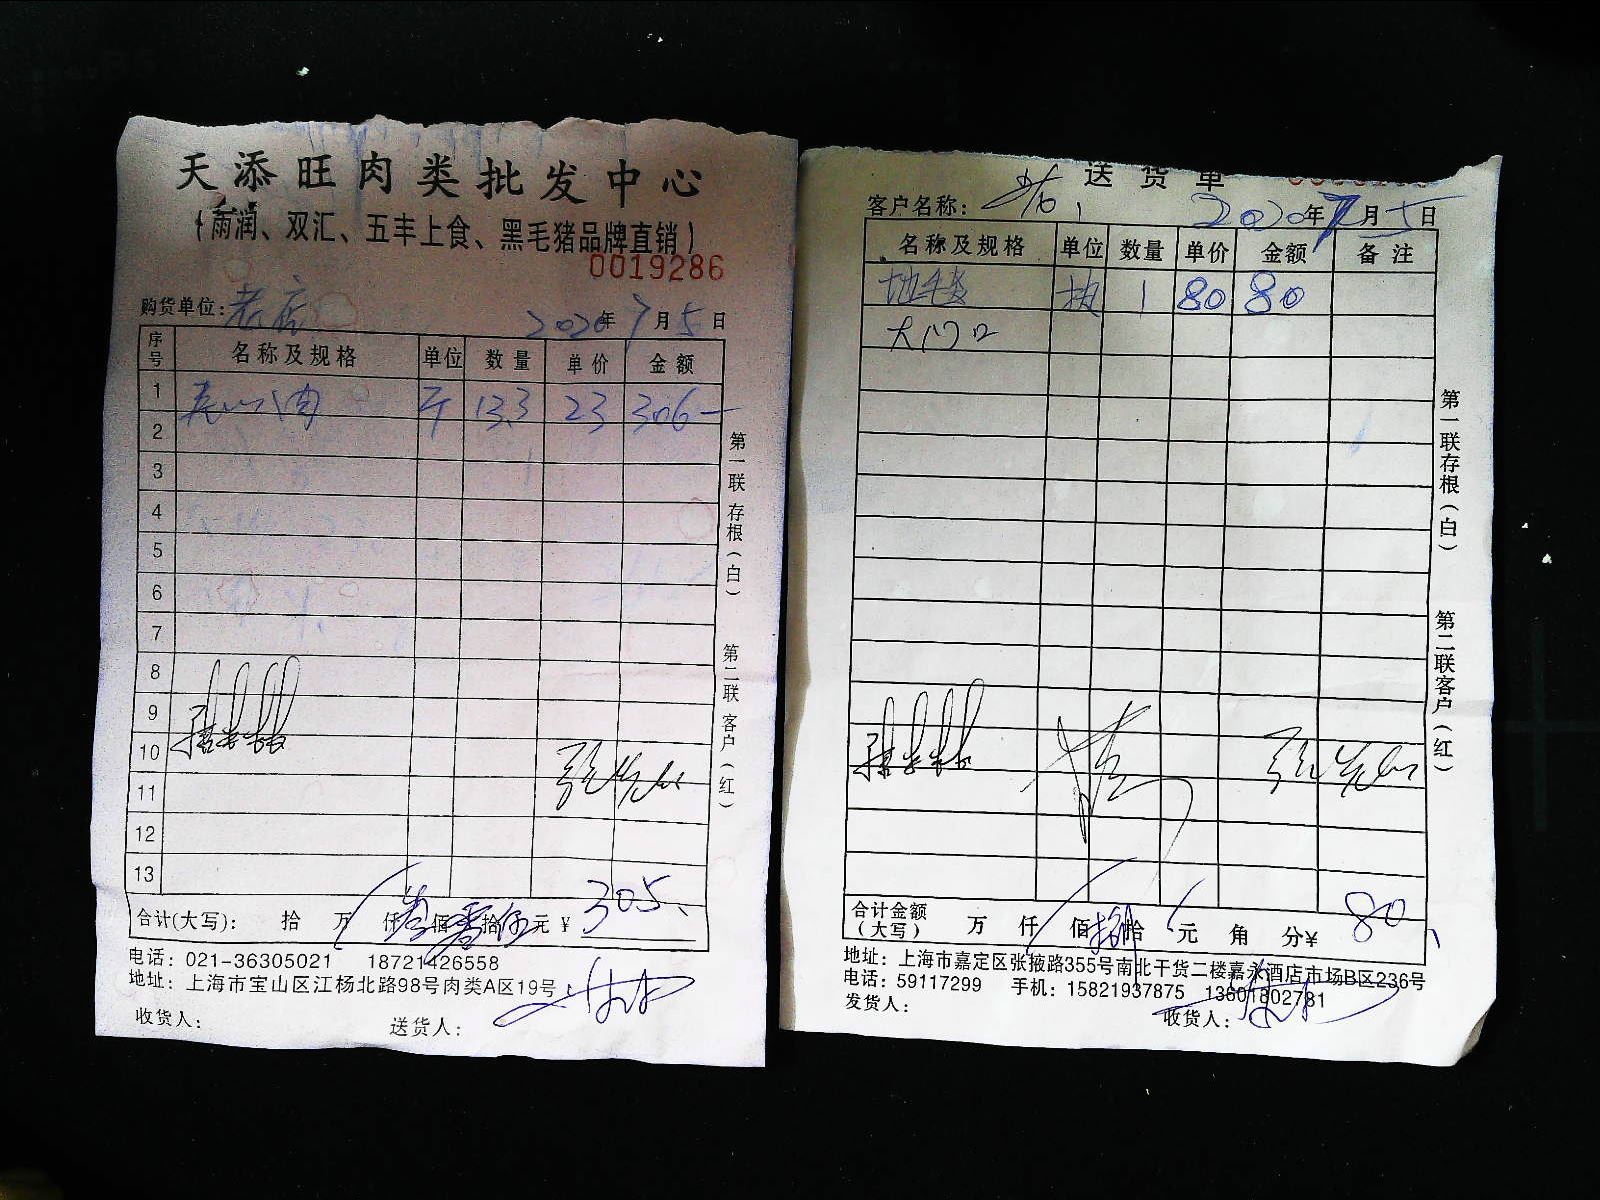 天添旺肉类批发中心
(雨润、双汇、五丰上食、黑毛猪品牌直销)
0019286
购货单位: 老店
2020年7月5日
序号 名称及规格 单位 数量 单价 金额
1 夹心肉 斤 13.3 23 306—
2
3
4
5
6
7
8
9
10
11
12
13
合计(大写): 拾 万 仟叁佰零拾伍元 ¥ 305、
电话: 021-36305021 18721426558
地址: 上海市宝山区江杨北路98号肉类A区19号
收货人: 送货人:
第一联 存根(白) 第二联 客户(红)
送货单
客户名称: 老、
2020年7月5日
名称及规格 单位 数量 单价 金额 备注
地毯 块 1 80 80
大门口
合计金额(大写) 万 仟 佰捌拾 元 角 分¥ 80、
地址: 上海市嘉定区张掖路355号南北干货二楼嘉永酒店市场B区236号
电话: 59117299 手机: 15821937875 13601802781
发货人: 收货人:
第一联存根(白) 第二联客户(红)